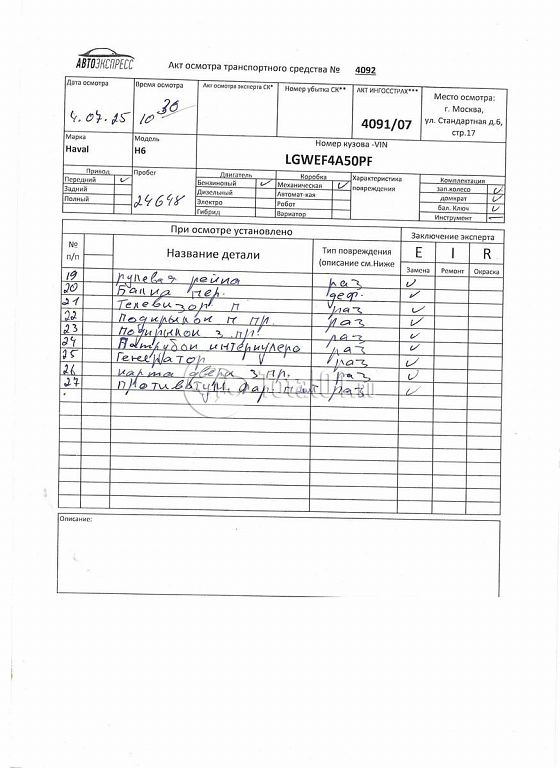 АВТОЭКСПРЕСС
Акт осмотра транспортного средства № 4092
Дата осмотра
4.07.25
Время осмотра
10 30
Акт осмотра эксперта СК*
Номер убытка СК**
АКТ ИНГОССТРАХ***
4091/07
Место осмотра:
г. Москва,
ул. Стандартная д.6,
стр.17
Марка
Haval
Модель
H6
Номер кузова -VIN
LGWEF4A50PF
Привод
Передний
Задний
Полный
Пробег
24648
Двигатель
Бензиновый
Дизельный
Электро
Гибрид
Коробка
Механическая
Автомат-кая
Робот
Вариатор
Характеристика
повреждения
Комплектация
зап.колесо
домкрат
бал. Ключ
Инструмент
При осмотре установлено
Заключение эксперта
№
п/п
Название детали
Тип повреждения
(описание см.Ниже
E I R
Замена Ремонт Окраска
19 рулевая рейка раз
20 Балка пер. деф.
21 Телевизор п раз
22 подкрылок п пр. раз
23 подкрылок з пр. раз
24 Патрубок интеркулера раз
25 Генератор раз
26 карта двери з.пр. раз
27 противотум. фар. раз
Описание: